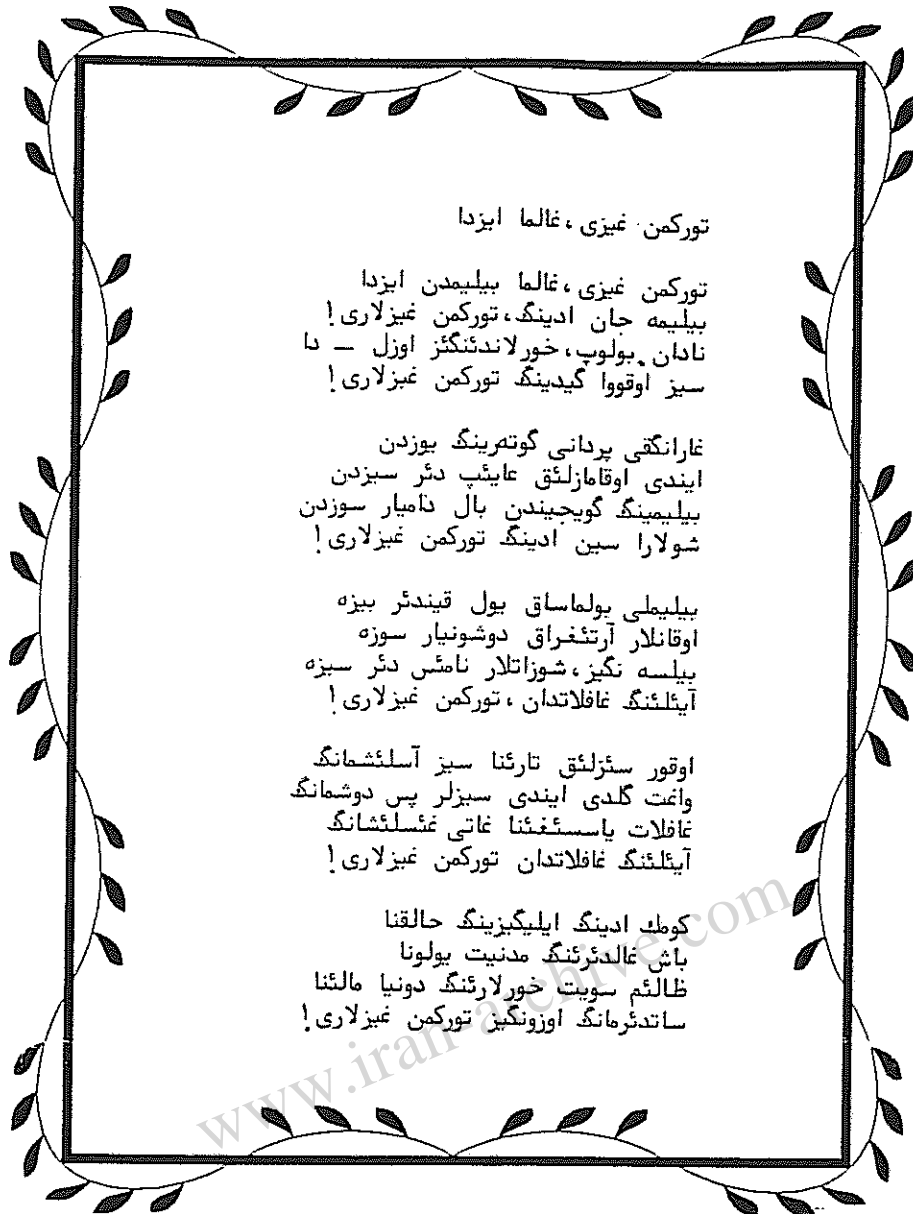 تورکمن غیزی، غالما ایزدا
تورکمن غیزی، غالما بیلیمدن ایزدا
بیلیمه جان ادینگ، تورکمن غیزلاری!
نادان بولوپ، خورلاندئنگئز اوزل – دا
سیز اوقووا گیدینگ تورکمن غیزلاری!
غارانگقی پردانی گوته‌رینگ یوزدن
ایندی اوقامازلئق عایئپ دئر سیزدن
بیلیمینگ گویجیندن بال دامیار سوزدن
شولارا سین ادینگ تورکمن غیزلاری!
بیلیملی بولماساق یول قیندئر بیزه
اوقانلار آرتئغراق دوشونیار سوزه
بیلسه نگیز، شوزاتلار نامئس دئر سیزه
آیئلئنگ غافلاتدان، تورکمن غیزلاری!
اوقور سئزلئق تارئنا سیز آسلئشمانگ
واغت گلدی ایندی سیزلر پس دوشمانگ
غافلات یاسسئغئنا غاتی غئسلئشانگ
آیئلئنگ غافلاتدان تورکمن غیزلاری!
کومك ادینگ ایلیگیزینگ حالقنا
باش غالدئرئنگ مدنیت یولونا
ظالئم سویت خورلارئنگ دونیا مالئنا
ساتدئرمانگ اوزونگیز تورکمن غیزلاری!
www.iran-archive.com